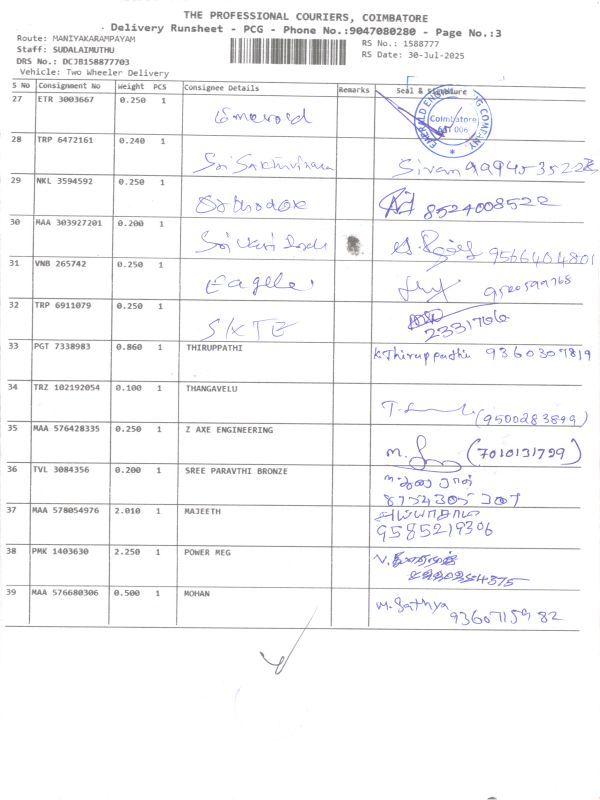 THE PROFESSIONAL COURIERS, COIMBATORE
Delivery Runsheet - PCG - Phone No.:9047080280 - Page No.:3
Route: MANIYAKARAMPAYAM
Staff: SUDALAIMUTHU
DRS No.: DCJB158877703
Vehicle: Two Wheeler Delivery
RS No.: 1588777
RS Date: 30-Jul-2025
S No Consignment No Weight PCS Consignee Details Remarks Seal & Signature
27 ETR 3003667 0.250 1 Emerold
Coimbatore
28 TRP 6472161 0.240 1 Sri Sakthivinaya Sivan
29 NKL 3594592 0.250 1 Orthodox 8524008522
30 MAA 303927201 0.200 1 Sri Hari 9566404801
31 VNB 265742 0.250 1 Eagele
32 TRP 6911079 0.250 1 SKTE 2331766
33 PGT 7338983 0.860 1 THIRUPPATHI K.Thiruppathi 9360307819
34 TRZ 102192054 0.100 1 THANGAVELU (9500283899)
35 MAA 576428335 0.250 1 Z AXE ENGINEERING (7010131799)
36 TVL 3084356 0.200 1 SREE PARAVTHI BRONZE
37 MAA 578054976 2.010 1 MAJEETH 9585219306
38 PMK 1403630 2.250 1 POWER MEG
39 MAA 576680306 0.500 1 MOHAN M. Sathya 9360715982